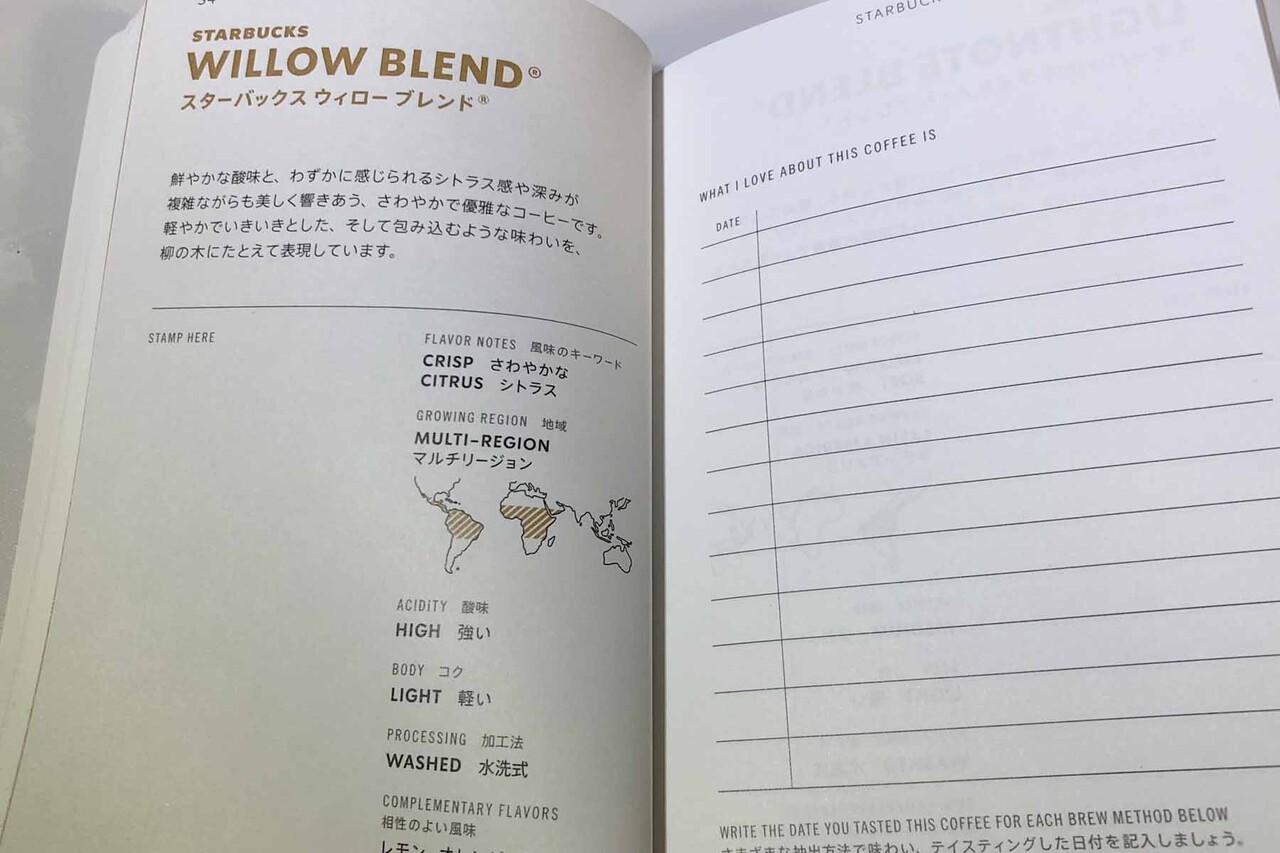 STARBUCKS
WILLOW BLEND®
スターバックス ウィロー ブレンド®
鮮やかな酸味と、わずかに感じられるシトラス感や深みが
複雑ながらも美しく響きあう、さわやかで優雅なコーヒーです。
軽やかでいきいきとした、そして包み込むような味わいを、
柳の木にたとえて表現しています。
STAMP HERE
FLAVOR NOTES 風味のキーワード
CRISP さわやかな
CITRUS シトラス
GROWING REGION 地域
MULTI-REGION
マルチリージョン
ACIDiTY 酸味
HIGH 強い
BODY コク
LIGHT 軽い
PROCESSING 加工法
WASHED 水洗式
COMPLEMENTARY FLAVORS
相性のよい風味
レモン
WHAT I LOVE ABOUT THIS COFFEE IS
DATE
WRITE THE DATE YOU TASTED THIS COFFEE FOR EACH BREW METHOD BELOW
さまざまな抽出方法で味わい、テイスティングした日付を記入しましょう。